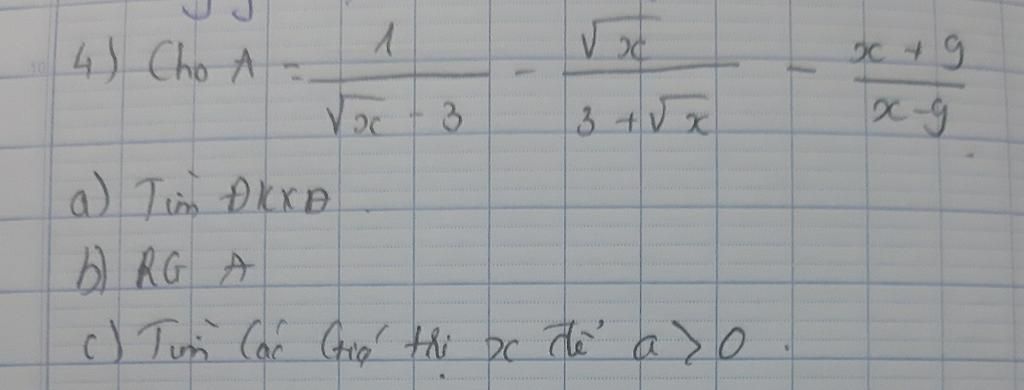 4) Cho A = 1/(√x - 3) - √x/(3 + √x) - (x + 9)/(x - 9)
a) Tìm ĐKXĐ
b) RG A
c) Tìm các giá trị x để a > 0.